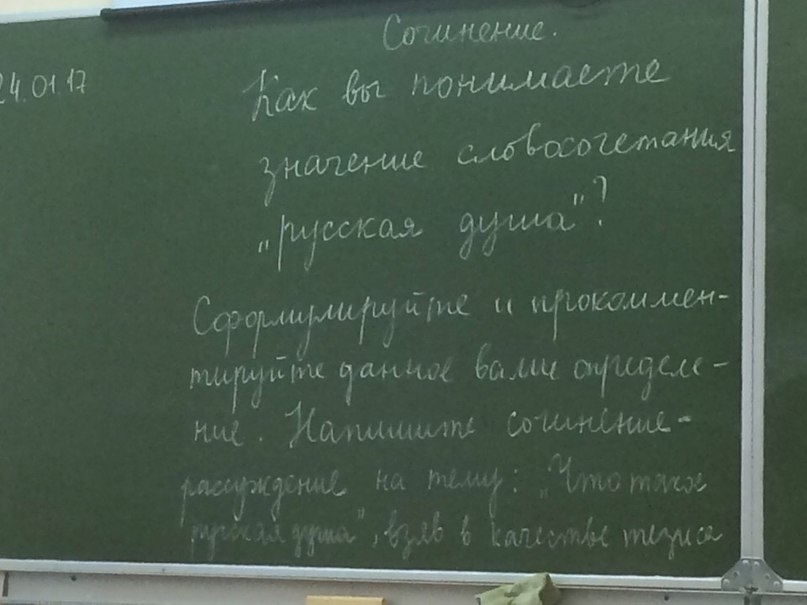 Сочинение.
24.01.17
Как вы понимаете
значение словосочетания
„русская душа"?
Сформулируйте и прокоммен-
тируйте данное вами определе-
ние. Напишите сочинение-
рассуждение на тему: „Что такое
русская душа", взяв в качестве тезиса